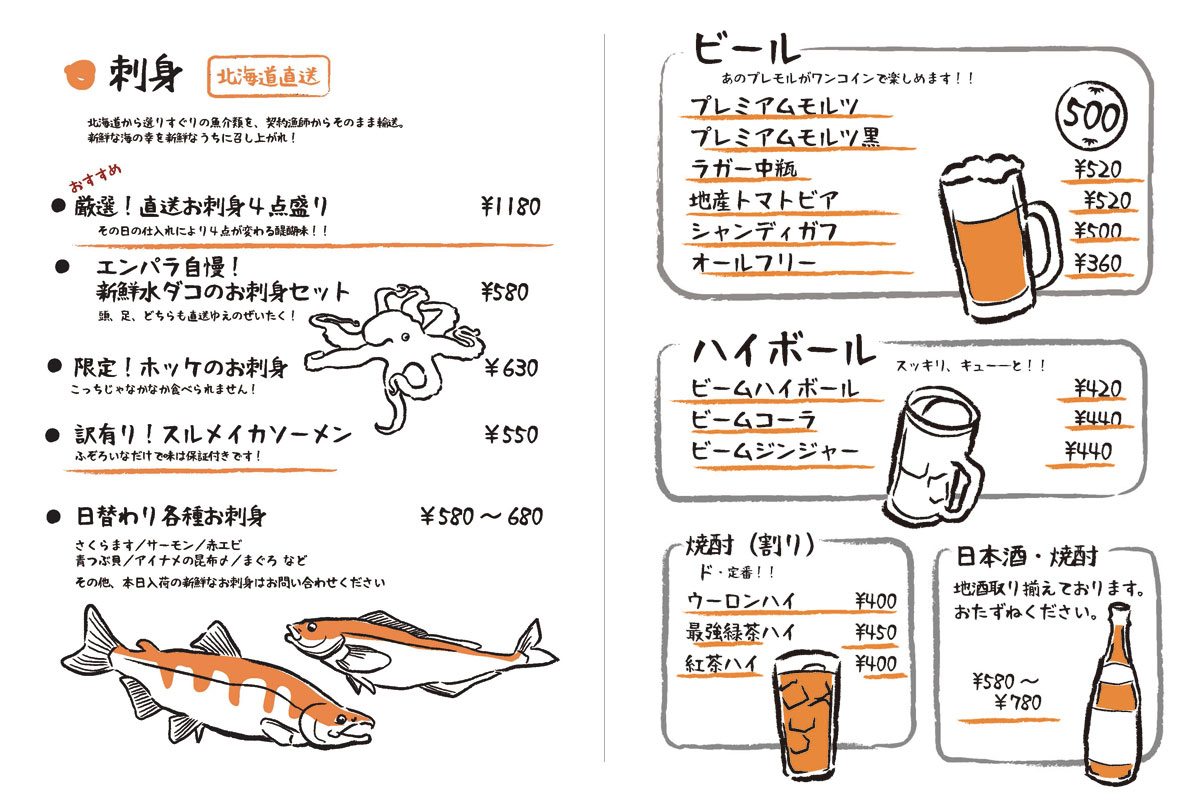 刺身
北海道直送
北海道から選りすぐりの魚介類を、契約漁師からそのまま輸送。
新鮮な海の幸を新鮮なうちに召し上がれ！
おすすめ
● 厳選！直送お刺身４点盛り ¥1180
その日の仕入れにより４点が変わる醍醐味！！
● エンパラ自慢！
新鮮水ダコのお刺身セット ¥580
頭、足、どちらも直送ゆえのぜいたく！
● 限定！ホッケのお刺身 ¥630
こっちじゃなかなか食べられません！
● 訳有り！スルメイカソーメン ¥550
ふぞろいなだけで味は保証付きです！
● 日替わり各種お刺身 ¥580～680
さくらます／サーモン／赤エビ
青つぶ貝／アイナメの昆布〆／まぐろ など
その他、本日入荷の新鮮なお刺身はお問い合わせください
ビール
あのプレモルがワンコインで楽しめます！！
プレミアムモルツ
500
プレミアムモルツ黒
ラガー中瓶 ¥520
地産トマトビア ¥520
シャンディガフ ¥500
オールフリー ¥360
ハイボール
スッキリ、キューーと！！
ビームハイボール ¥420
ビームコーラ ¥440
ビームジンジャー ¥440
焼酎（割り）
ド・定番！！
ウーロンハイ ¥400
最強緑茶ハイ ¥450
紅茶ハイ ¥400
日本酒・焼酎
地酒取り揃えております。
おたずねください。
¥580～
¥780